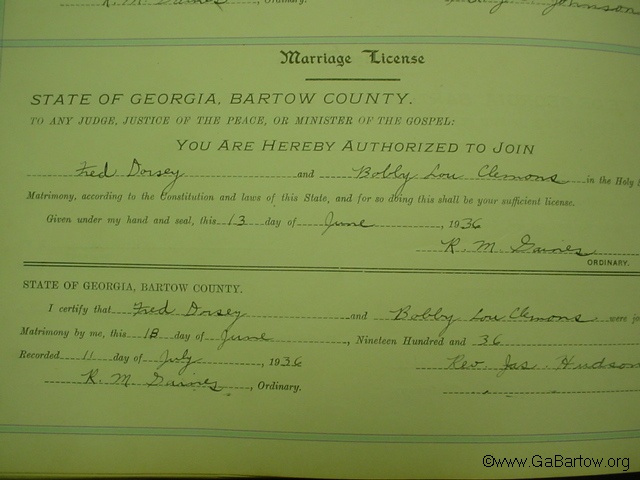 R. M. Gaines, Ordinary. Johnson
Marriage License
STATE OF GEORGIA, BARTOW COUNTY.
TO ANY JUDGE, JUSTICE OF THE PEACE, OR MINISTER OF THE GOSPEL:
YOU ARE HEREBY AUTHORIZED TO JOIN
Fred Dorsey and Bobby Lou Clemons in the Holy
Matrimony, according to the Constitution and laws of this State, and for so doing this shall be your sufficient license.
Given under my hand and seal, this 13 day of June, 1936
R. M. Gaines
ORDINARY.
STATE OF GEORGIA, BARTOW COUNTY.
I certify that Fred Dorsey and Bobby Lou Clemons were
Matrimony by me, this 18 day of June, Nineteen Hundred and 36
Recorded 11 day of July, 1936 Rev. Jas. Hudson
R. M. Gaines, Ordinary.
©www.GaBartow.org